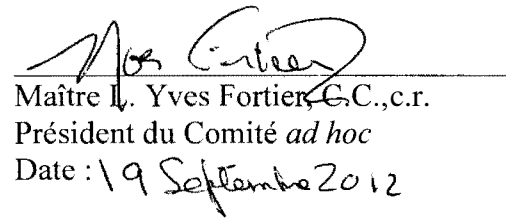 Yves Fortier
Maître L. Yves Fortier, C.C.,c.r.
Président du Comité ad hoc
Date : 19 Septembre 2012